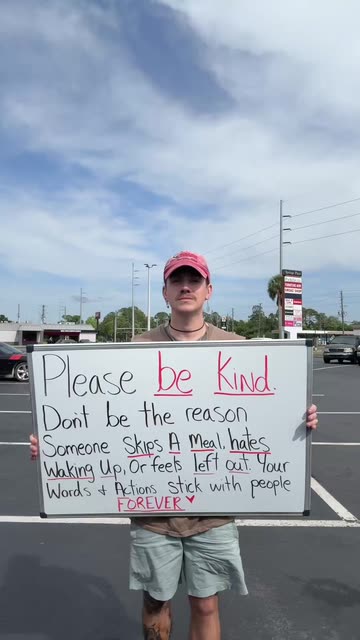 Please be Kind.
Dont be the reason
Someone Skips A Meal, hates
Waking Up, Or feels left out. Your
Words + Actions stick with people
FOREVER ♥